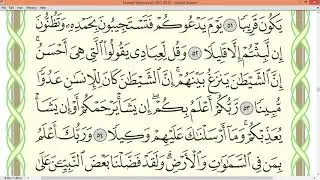 يَكُونَ قَرِيبًا ٥١ يَوْمَ يَدْعُوكُمْ فَتَسْتَجِيبُونَ بِحَمْدِهِۦ وَتَظُنُّونَ
إِن لَّبِثْتُمْ إِلَّا قَلِيلًا ٥٢ وَقُل لِّعِبَادِى يَقُولُوا۟ ٱلَّتِى هِىَ أَحْسَنُ ۚ
إِنَّ ٱلشَّيْطَٰنَ يَنزَغُ بَيْنَهُمْ ۚ إِنَّ ٱلشَّيْطَٰنَ كَانَ لِلْإِنسَٰنِ عَدُوًّا
مُّبِينًا ٥٣ رَّبُّكُمْ أَعْلَمُ بِكُمْ ۖ إِن يَشَأْ يَرْحَمْكُمْ أَوْ إِن يَشَأْ
يُعَذِّبْكُمْ ۚ وَمَآ أَرْسَلْنَٰكَ عَلَيْهِمْ وَكِيلًا ٥٤ وَرَبُّكَ أَعْلَمُ
بِمَن فِى ٱلسَّمَٰوَٰتِ وَٱلْأَرْضِ ۗ وَلَقَدْ فَضَّلْنَا بَعْضَ ٱلنَّبِيِّۦنَ عَلَىٰ